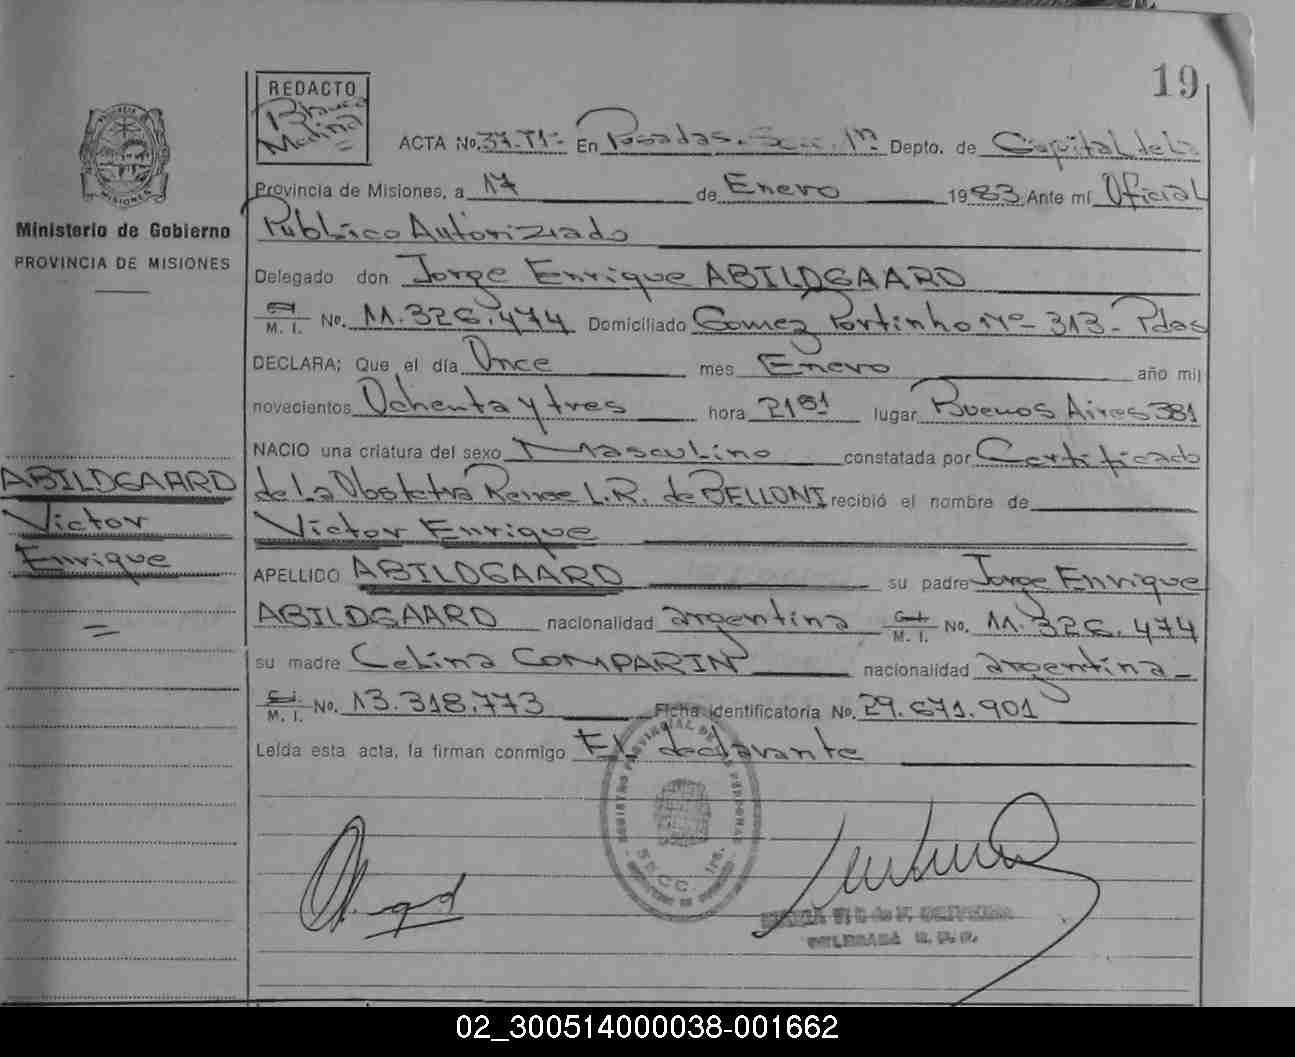 19
REDACTO
Blanca
Molina
ACTA No. 37-T1- En Posadas. Sec. 1ª Depto. de Capital de la
Provincia de Misiones, a 17 de Enero 1983 Ante mí Oficial
Público Autorizado
Delegado don Jorge Enrique ABILDGAARD
M. I. No. 11.326.474 Domiciliado Gomez Portinho Nº 313- Pdas
DECLARA; Que el día Once mes Enero año mil
novecientos Ochenta y tres hora lugar Buenos Aires 381
NACIO una criatura del sexo Masculino constatada por Certificado
de la Obstetra Renee L.R. de BELLONI recibió el nombre de
Víctor Enrique
APELLIDO ABILDGAARD su padre Jorge Enrique
ABILDGAARD nacionalidad argentina C.I. M. I. No. 11.326.474
su madre Celina COMPARIN nacionalidad argentina
C.I. M. I. No. 13.318.773 Ficha identificatoria No. 29.671.901
Leída esta acta, la firman conmigo El declarante
Ministerio de Gobierno
PROVINCIA DE MISIONES
ABILDGAARD
Víctor
Enrique
REGISTRO PROVINCIAL DE LAS PERSONAS
DELEGADA R. P. P.
02_300514000038-001662